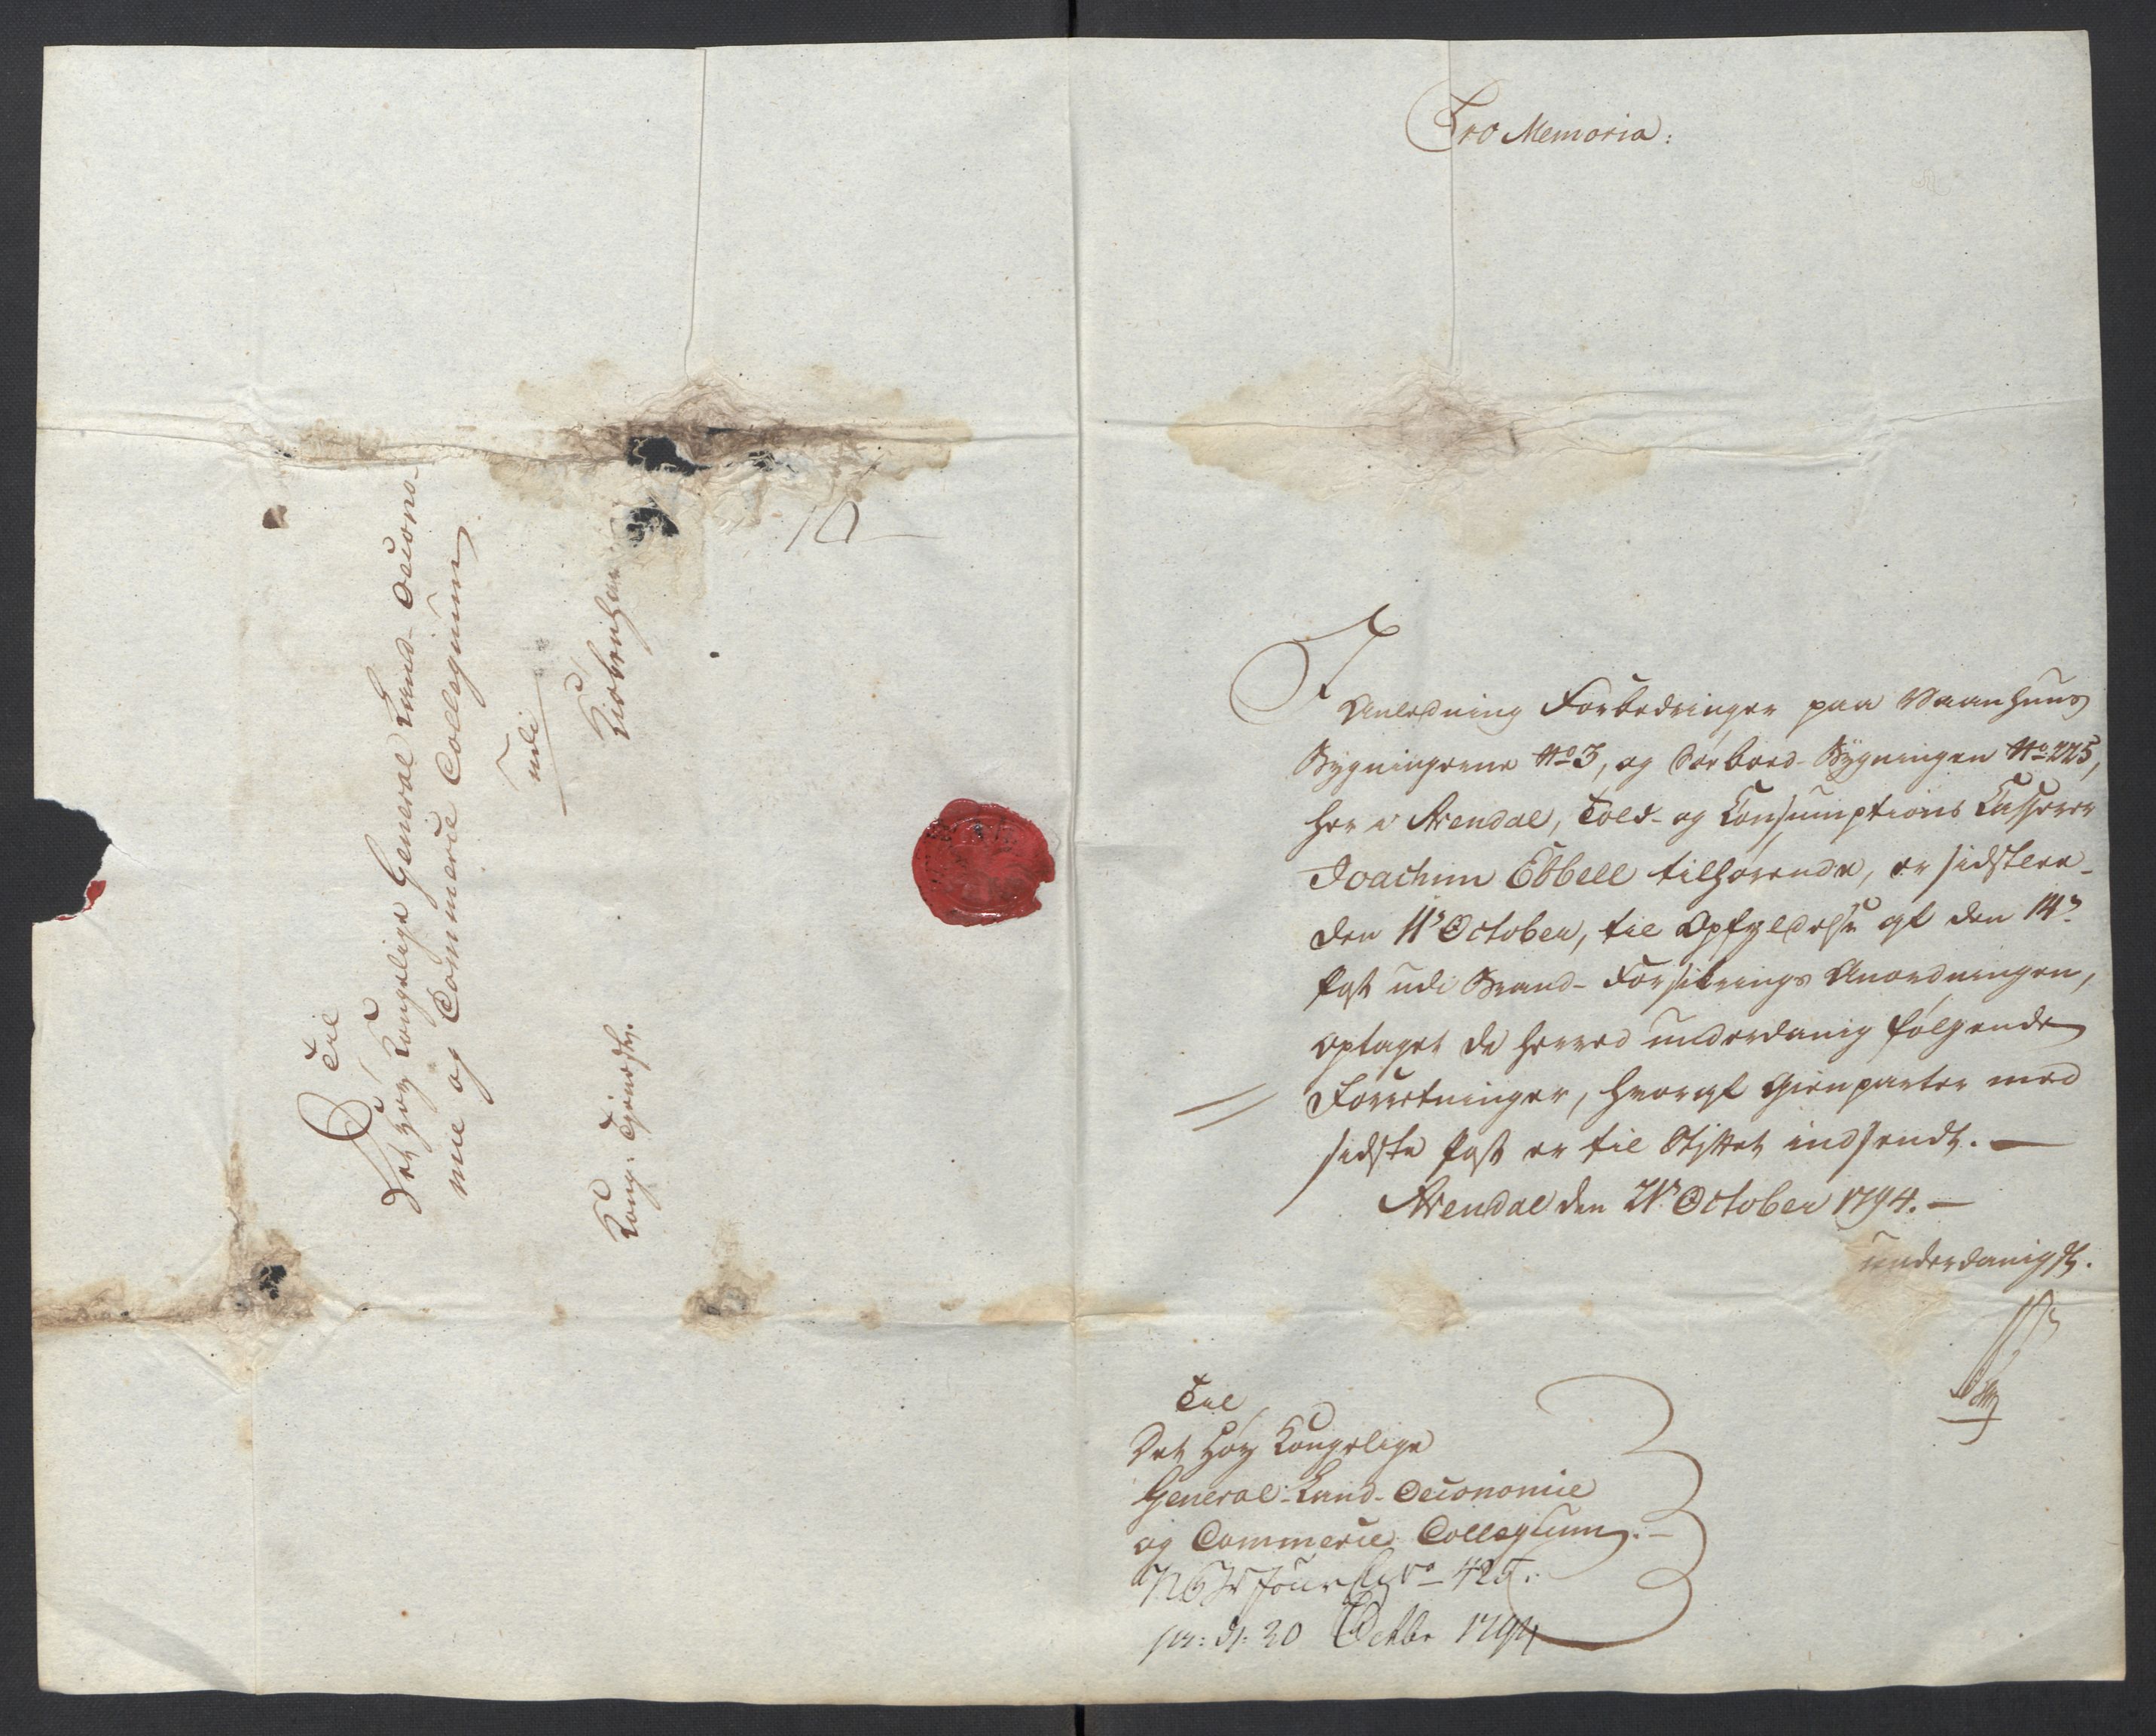 Til
Det Høy Kongelige General Land-Oecono-
mie og Commerce Collegium
udi
Kiøbenhavn
Kong: Tjeneste.
Pro Memoria:
I Anledning Forbedringer paa Vaanhuus
Bygningerne No 3, og Bygningen No 225,
her i Arendal, Told- og Consumptions Casserer
Joachim Ebbell tilhørende, er sidstlee-
den 11te October, til Opfyldelse af den 14de
Post udi Brand-Forsikrings Anordningen,
optaget de herved underdanig følgende
Forretninger, hvoraf Gienparter med
sidste Post er til Stiftet indsendt. —
Arendal den 21de October 1794. —
underdanigst.
Til
Det Høy Kongelige
General-Land-Oeconomie
og Commerce Collegium. —
No 425.
pr: d: 30 Octbr 1794